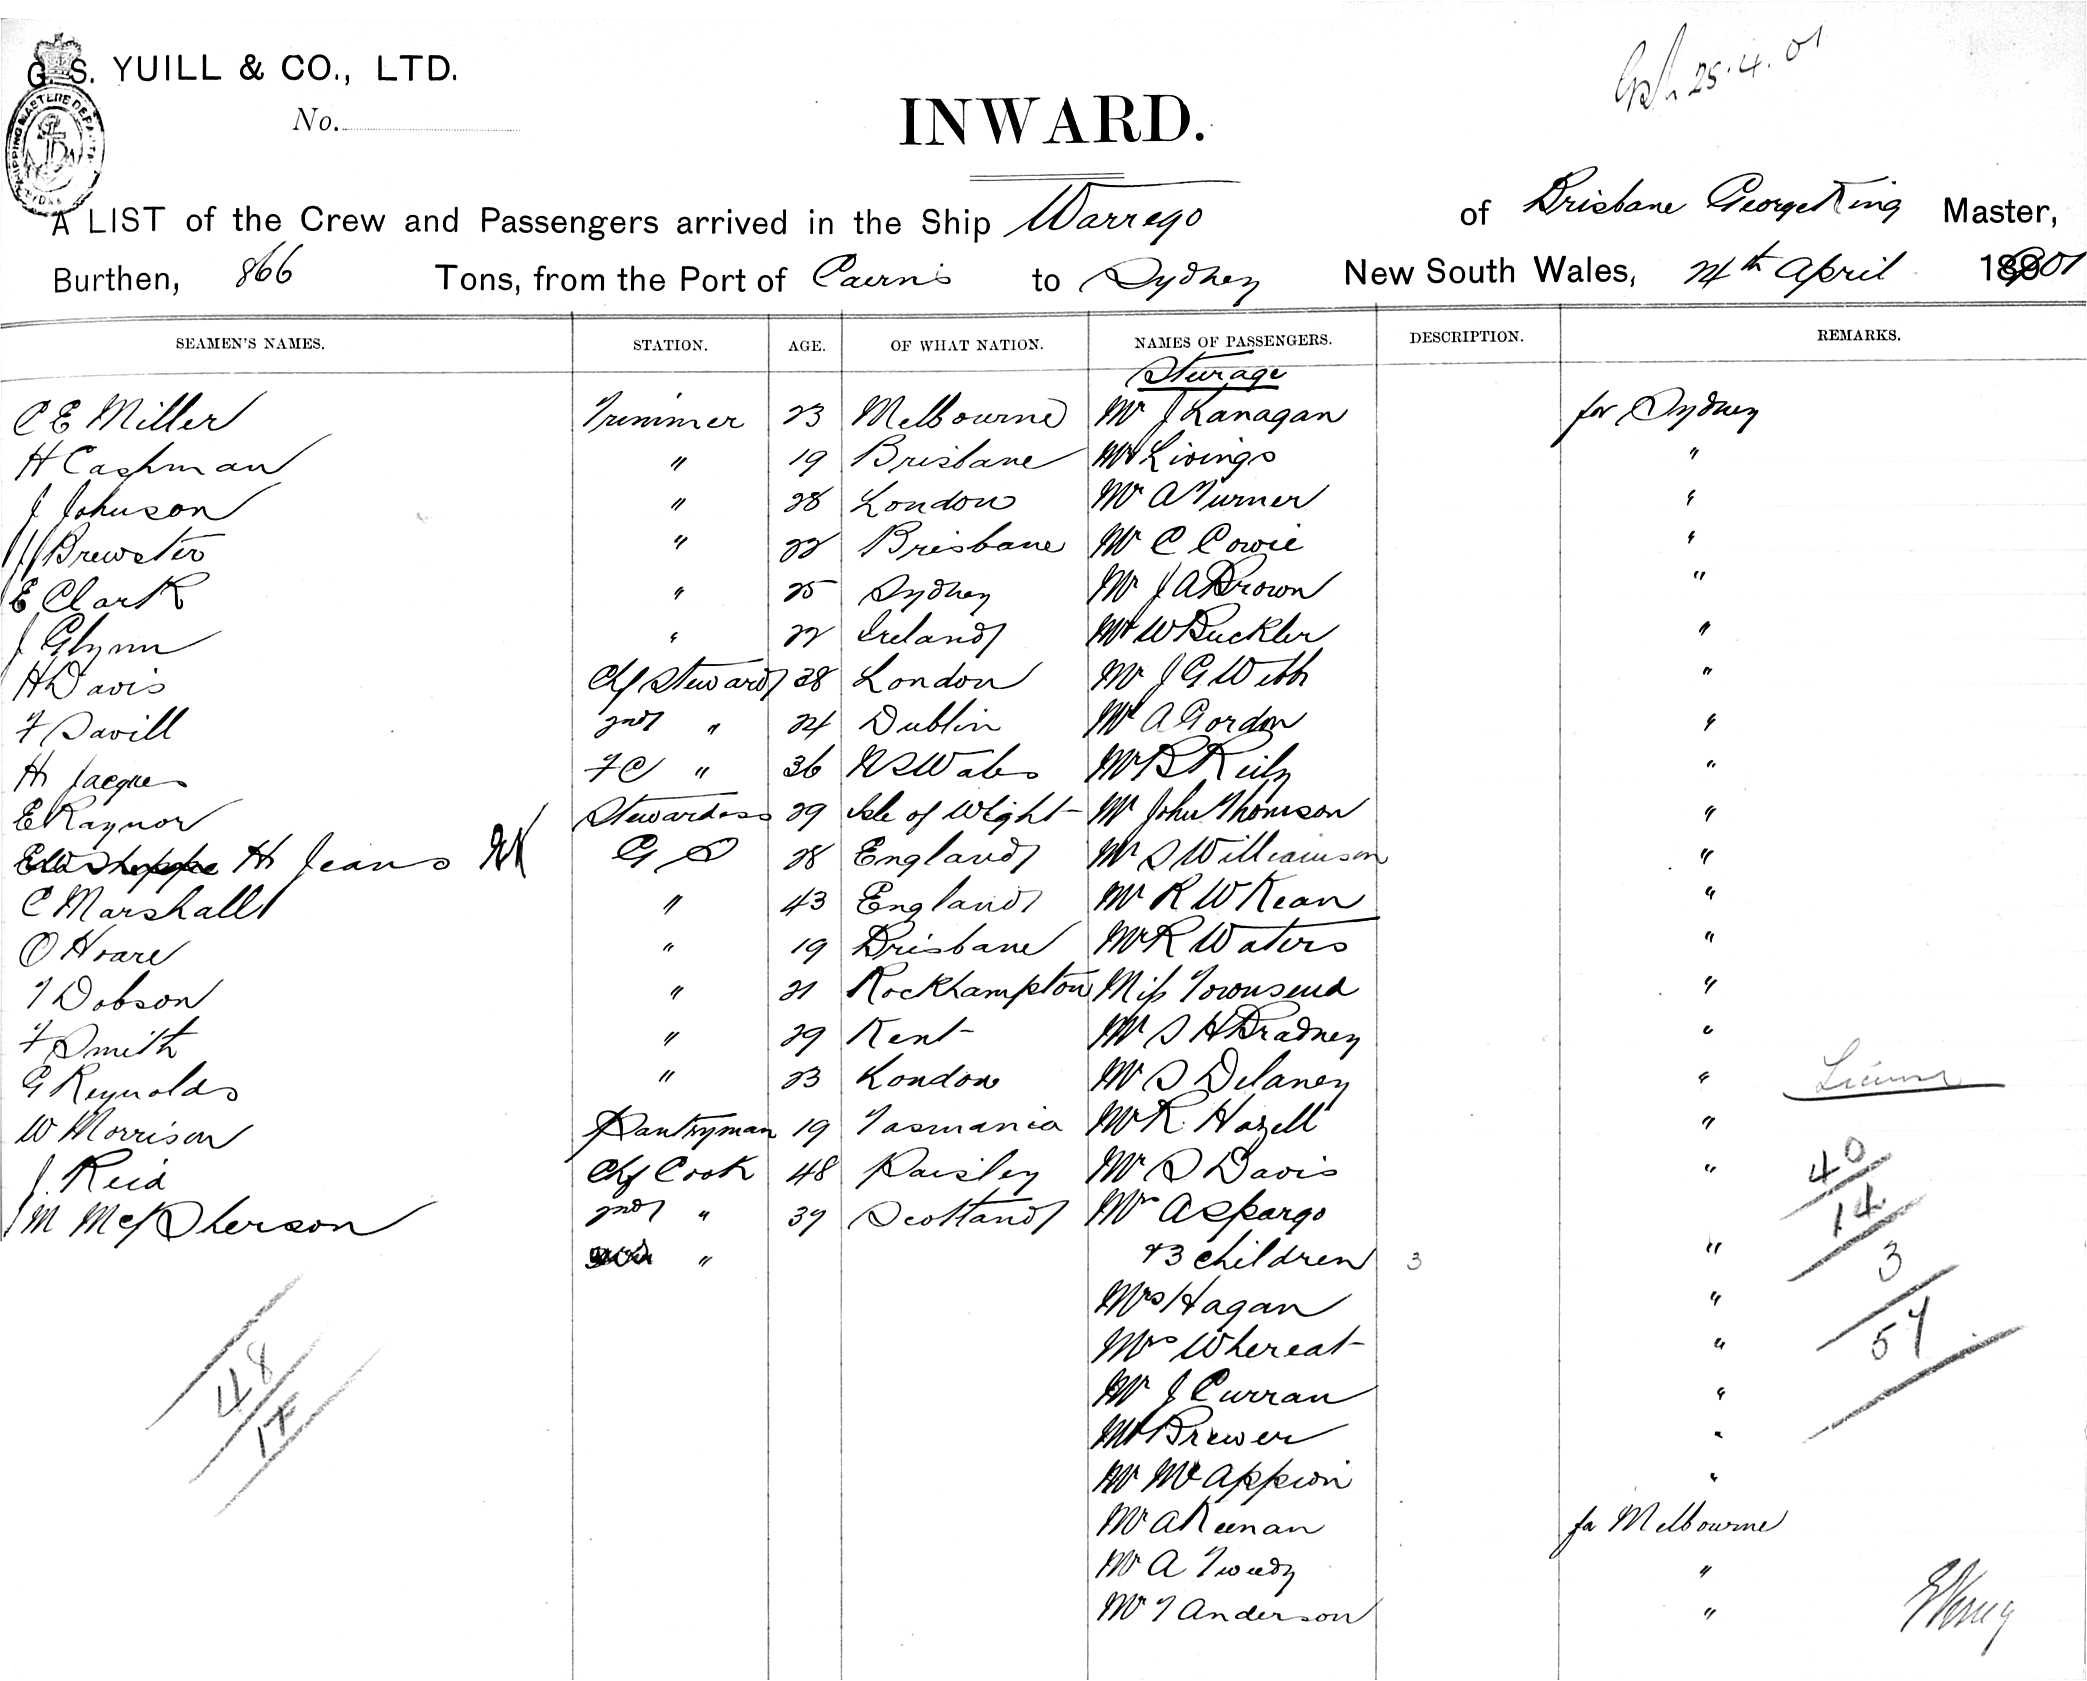 G. S. YUILL & CO., LTD.
No.
25.4.01
INWARD.
SHIPPING MASTERS DEPART
A LIST of the Crew and Passengers arrived in the Ship Warrego of Brisbane George King Master,
Burthen, 866 Tons, from the Port of Cairns to Sydney New South Wales, 24th April 1901
SEAMEN'S NAMES. STATION. AGE. OF WHAT NATION. NAMES OF PASSENGERS. DESCRIPTION. REMARKS.
Sturage
C E Miller Trimmer 23 Melbourne Mr J Lanagan for Sydney
H Cashman " 19 Brisbane Mr Livings "
J Johnson " 28 London Mr A Turner "
Brewster " 22 Brisbane Mr C Cowie "
E Clark " 25 Sydney Mr J A Brown "
J Glynn " 22 Ireland Mr W Buckler "
H Davis Chf Steward 38 London Mr J G Webb "
F Savill 2nd " 24 Dublin Mr A Gordon "
H Jacques F C " 36 N S Wales Mr B Reily "
E Raynor Stewardess 29 Isle of Wight Mr John Thomson "
H Jeans G S 28 England Mr S Williamson "
C Marshall " 43 England Mr R W Kean "
O Hoare " 19 Brisbane Mr R Waters "
T Dobson " 21 Rockhampton Miss Townsend "
F Smith " 29 Kent Mr S H Bradney "
G Reynolds " 23 London Mr S Delaney "
W Morrison Pantryman 19 Tasmania Mr R. Hazell "
J. Reid Chf Cook 48 Paisley Mr S Davis "
M McPherson 2nd " 39 Scotland Mrs A Spargo
" & 3 children 3 "
Mrs Hagan "
Mrs Whereat "
Mr J Curran "
Mr Brewer "
Mr McAppion "
Mr A Keenan for Melbourne
Mr A Tweedy "
Mr T Anderson "
40
14
3
57
48
17